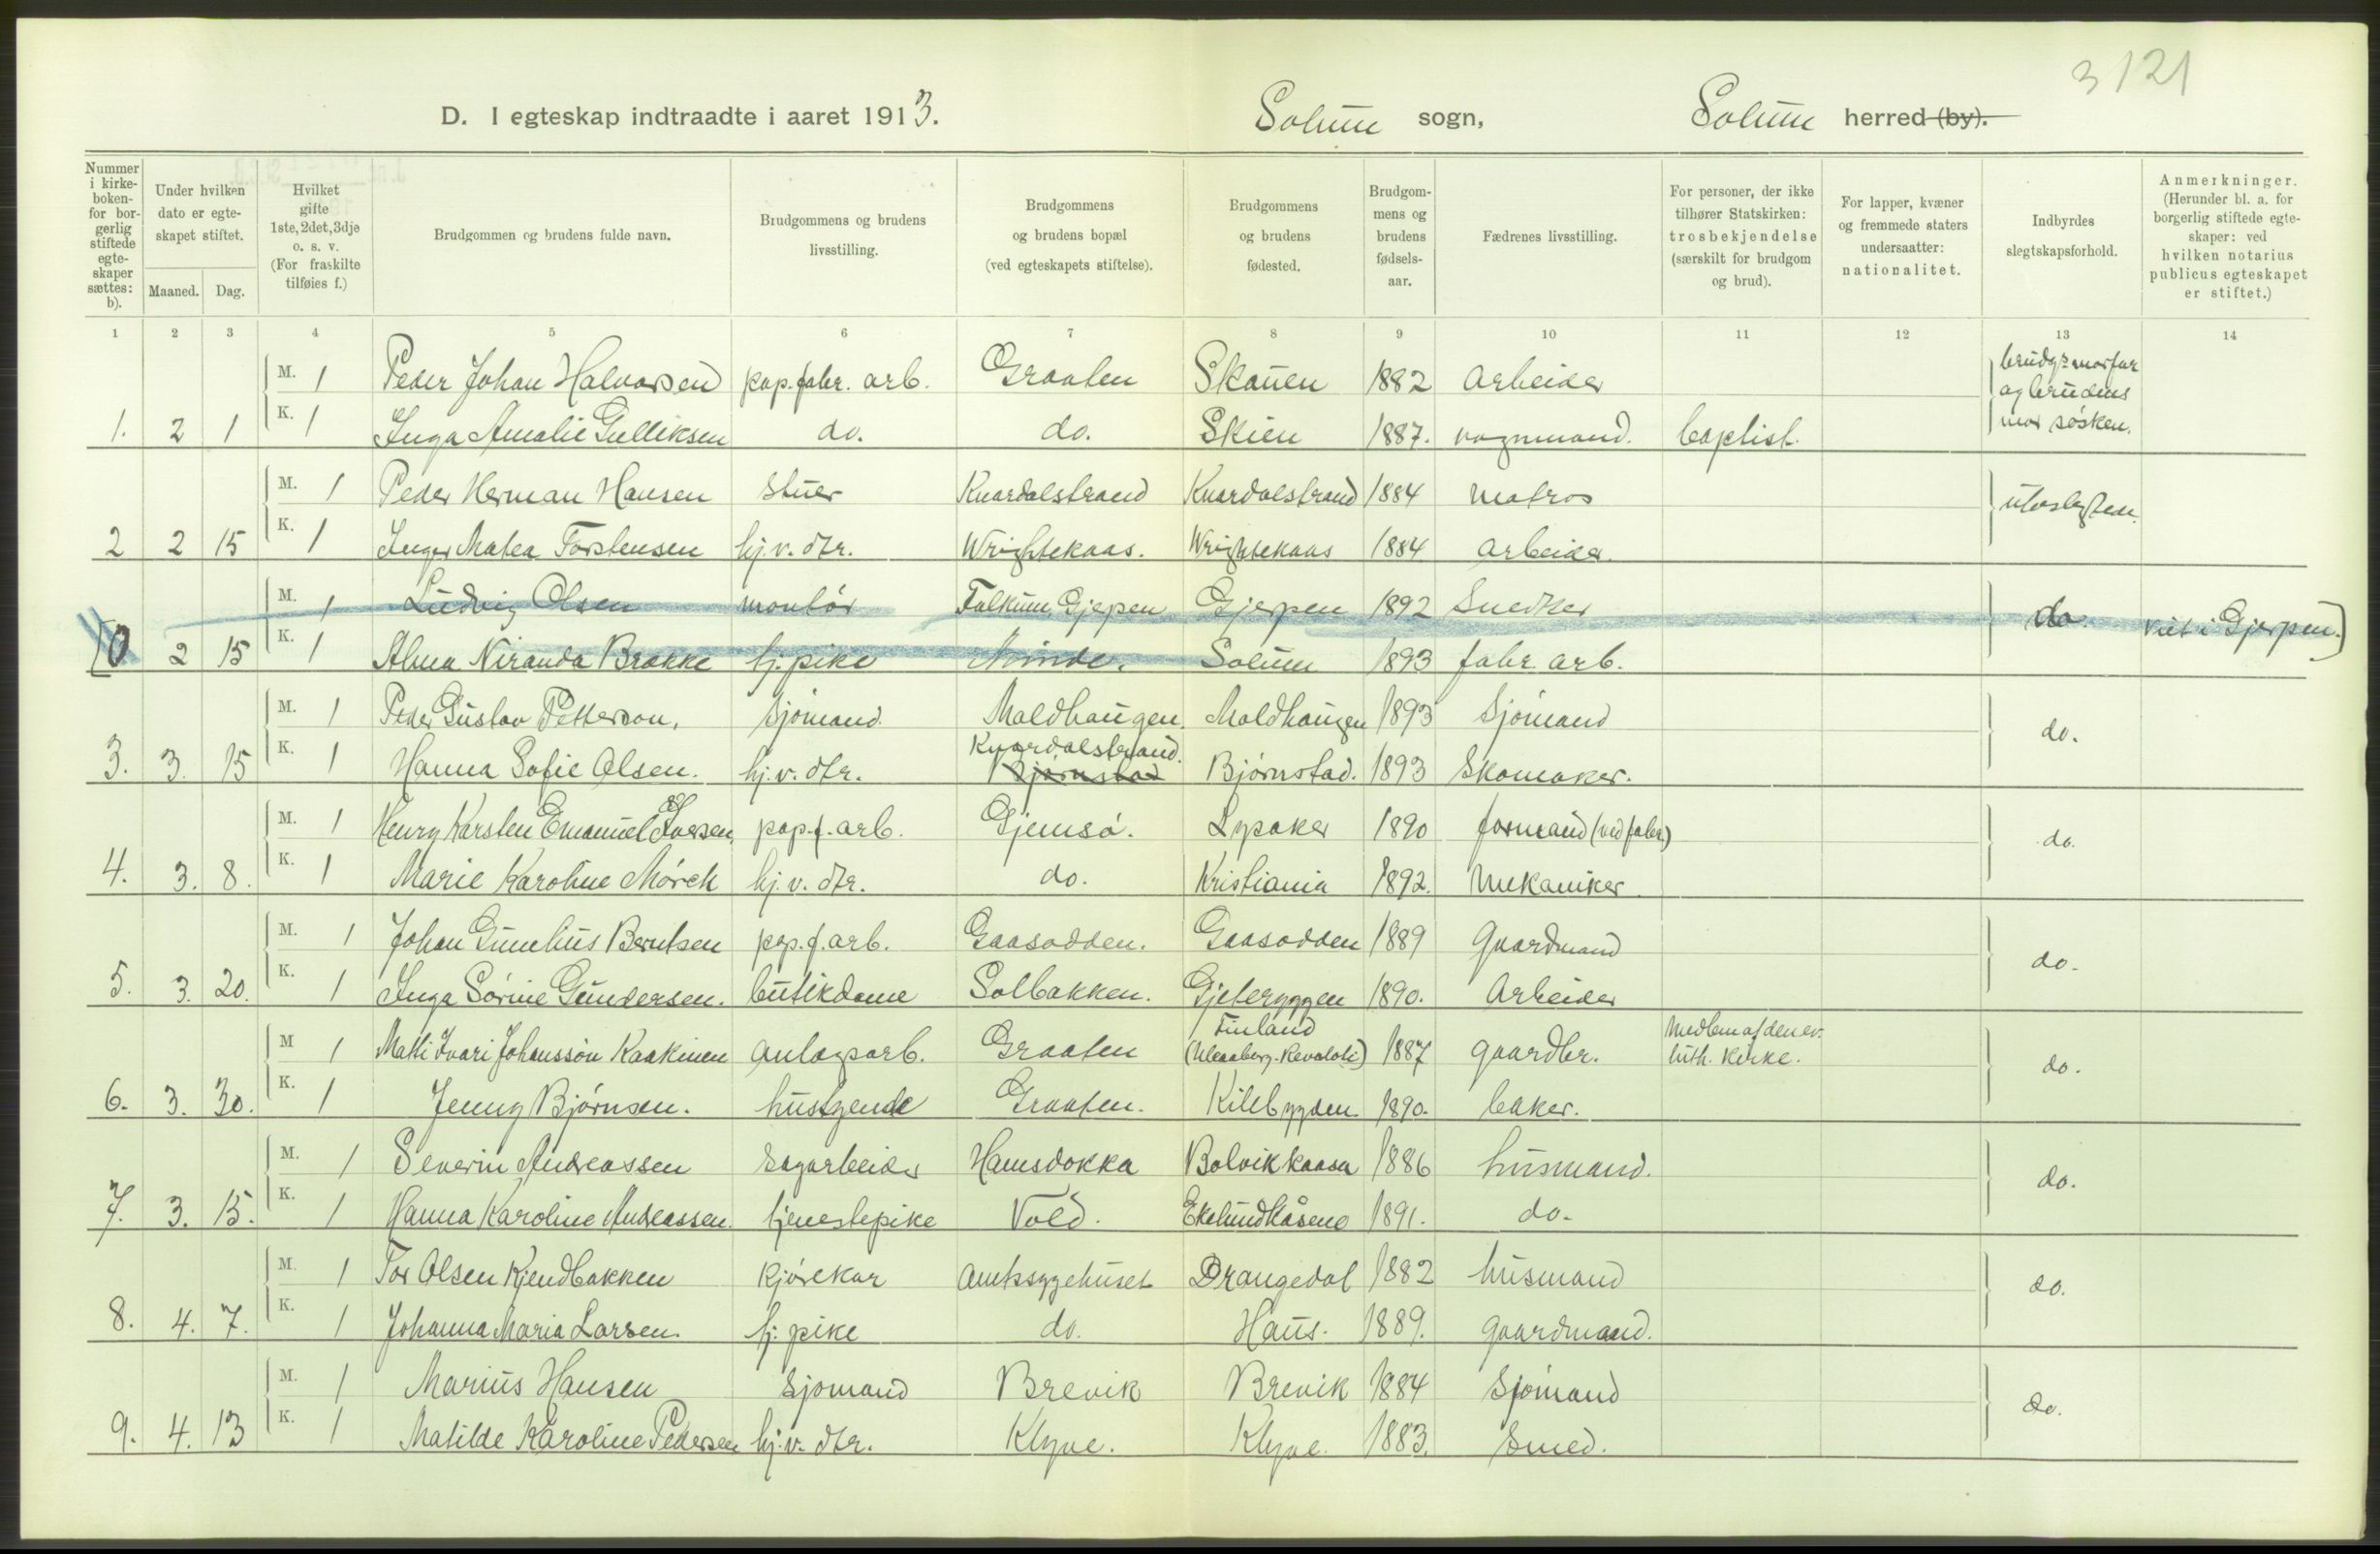 3121
D. I egteskap indtraadte i aaret 1913. Solum sogn, Solum herred (by).
Nummer i kirke-boken- for bor-gerlig stiftede egte-skaper sættes: b).
Under hvilken dato er egte-skapet stiftet.
Maaned. Dag.
Hvilket gifte 1ste, 2det, 3dje o. s. v. (For fraskilte tilføies f.)
Brudgommen og brudens fulde navn.
Brudgommens og brudens livsstilling.
Brudgommens og brudens bopæl (ved egteskapets stiftelse).
Brudgommens og brudens fødested.
Brudgom-mens og brudens fødsels-aar.
Fædrenes livsstilling.
For personer, der ikke tilhører Statskirken: trosbekjendelse (særskilt for brudgom og brud).
For lapper, kvæner og fremmede staters undersaatter: nationalitet.
Indbyrdes slegtskapsforhold.
Anmerkninger. (Herunder bl. a. for borgerlig stiftede egte-skaper: ved hvilken notarius publicus egteskapet er stiftet.)
1 2 3 4 5 6 7 8 9 10 11 12 13 14
M. 1 Peder Johan Halvorsen pap. fabr. arb. Graaten Skauen 1882 Arbeider brudg.s morfar
og brudens
1. 2 1 K. 1 Inga Amalie Gulliksen do. do. Skien 1887. vognmand. baptist. mor søsken.
M. 1 Peder Herman Hansen stuer Knardalstrand Knardalstrand 1884 matros utenslegten.
2 2 15 K. 1 Inger Matea Torstensen hj. v. dtr. Wrightekaas. Wrightekaas 1884 arbeider.
M. 1 Ludvig Olsen montör Falkum, Gjepen Gjerpen 1892 Snedker do. viet i Gjerpen.]
[0 2 15 K. 1 Alma Niranda Brakke tj. pike Minde. Solum 1893 fabr. arb.
M. 1 Peder Gustav Petterson. Sjömand. Moldhaugen. Moldhaugen 1893 Sjömand do.
Knardalstrand.
3. 3. 15 K. 1 Hanna Sofie Olsen. hj. v. dtr. Bjørnstad Bjørnstad. 1893 Skomaker.
M. 1 Henry Karsten Emanuel Iversen, pap. f. arb. Gjemsö. Lyaker 1890 formand (ved fabr.) do.
4. 3. 8. K. 1 Marie Karoline Mörch hj. v. dtr. do. Kristiania 1892. Mekaniker
M. 1 Johan Gunelius Berntsen pap. f. arb. Gaasodden. Gaasodden 1889 Gaardmand do.
5. 3. 20. K. 1 Inga Sörine Gundersen. butikdame Solbakken. Gjeteryggen 1890. Arbeider
Finland Medlem af den ev.
M 1 Matti Ivari Johansson Kaakinen Anlægsarb. Graaten (Uleaborg. Revolati) 1887 gaardbr. luth. kirke. do.
6. 3. 30. K. 1 Jenny Björnsen. hustgende Graaten. Kilebygden 1890. baker.
M. 1 Severin Andreassen Sagarbeider Hamsdokka Bolvikkaasa 1886 husmand. do.
7. 3. 15. K. 1 Hanna Karoline Andreassen. tjenestepike Vold. Eklundkåsene 1891. do.
M. 1 Tor Olsen Kjendbakken Kjörekar Amtssygehuset Drangedal 1882 husmand do.
8. 4. 7. K. 1 Johanna Maria Larsen. tj. pike do. Haus. 1889. gaardmand.
M. 1 Marius Hansen Sjömand Brevik Brevik 1884 Sjömand do.
9. 4. 13 K. 1 Matilde Karoline Pedersen hj. v. dtr. Klyve. Klyve. 1883. Smed.